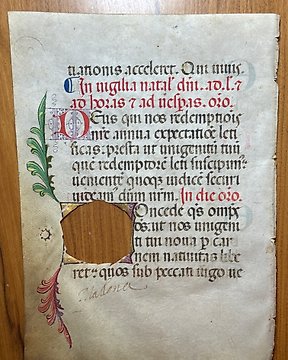 nationis acceleret. Qui viuis.
In vigilia natal' dñi. ad .i. et
ad horas et ad uesp̃as. oro.
DEus qui nos redemptiõis
nr̃e annua expectatiõe leti
ficas: presta ut unigenitũ tuũ
quẽ redemptorẽ leti suscipim'
uenientẽ quoq; iudicẽ securi
uideam' dñm nr̃m. In die oro.
Concede qs̃ omp̃s
ds: ut nos unigeni
ti tui noua p carnem
natiuitas libe
ret: quos sub peccati iugo ue